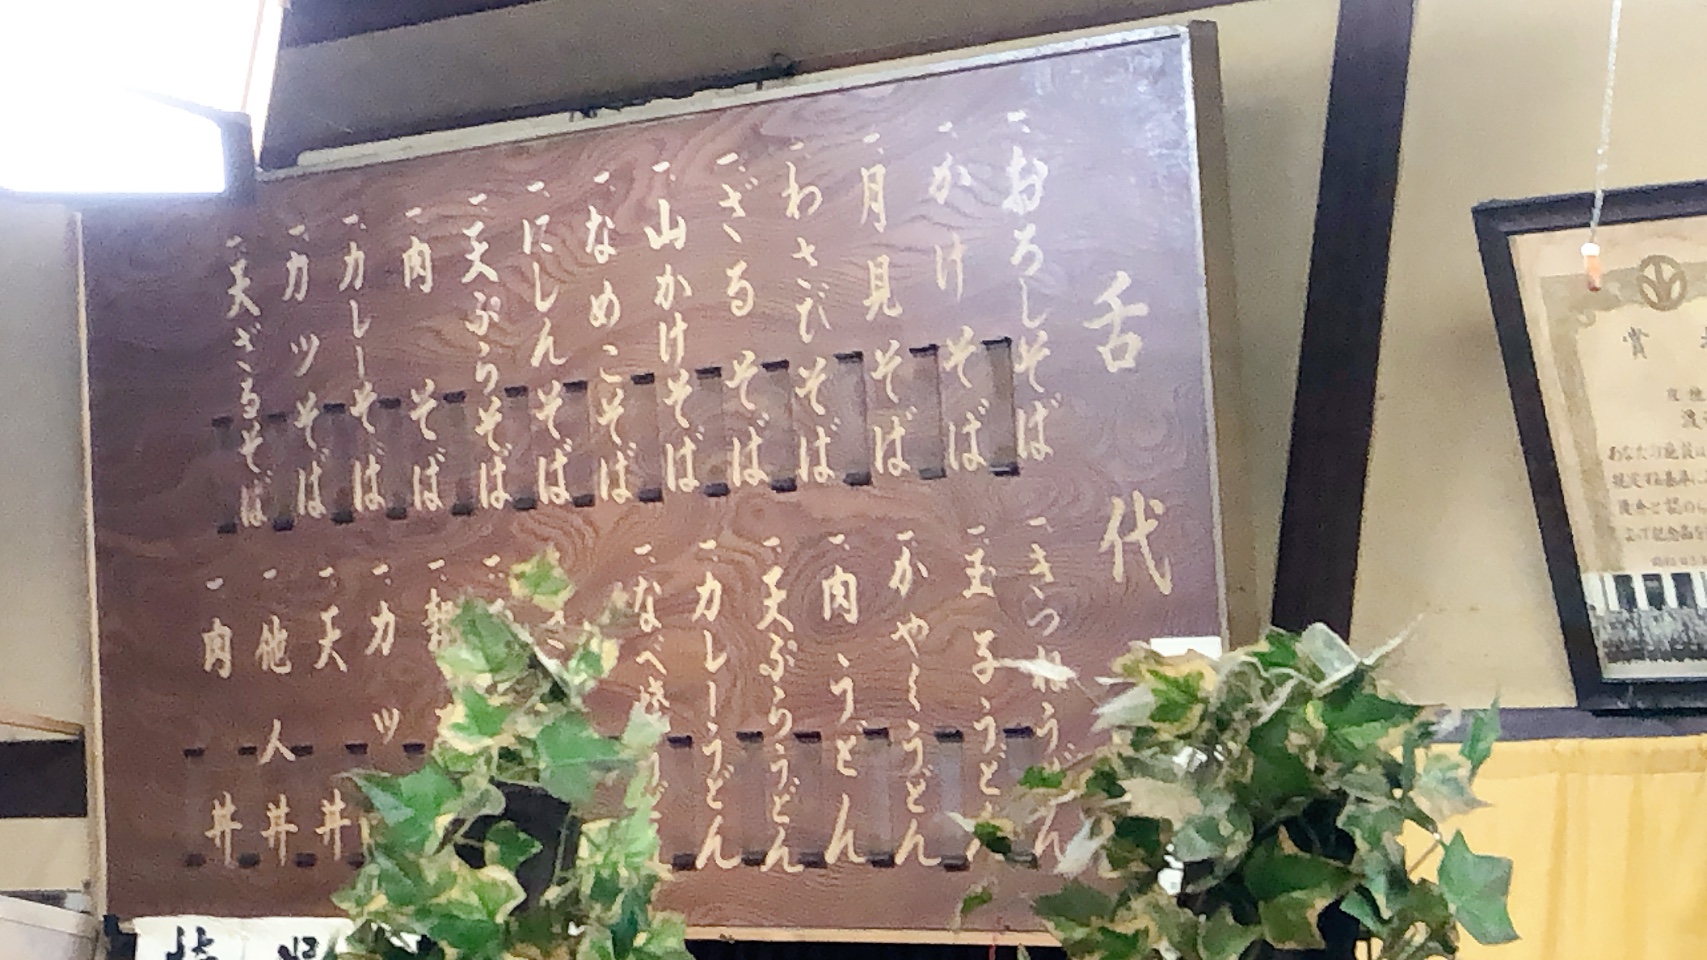 舌代
一、おろしそば
一、かけそば
一、月見そば
一、わさびそば
一、ざるそば
一、山かけそば
一、なめこそば
一、にしんそば
一、天ぷらそば
一、肉そば
一、カレーそば
一、カツそば
一、天ざるそば
一、きつねうどん
一、玉子うどん
一、かやくうどん
一、肉うどん
一、天ぷらうどん
一、カレーうどん
一、なべ焼うどん
一、
一、親
一、カツ
一、天丼
一、他人丼
一、肉丼
賞
あなたの施設は